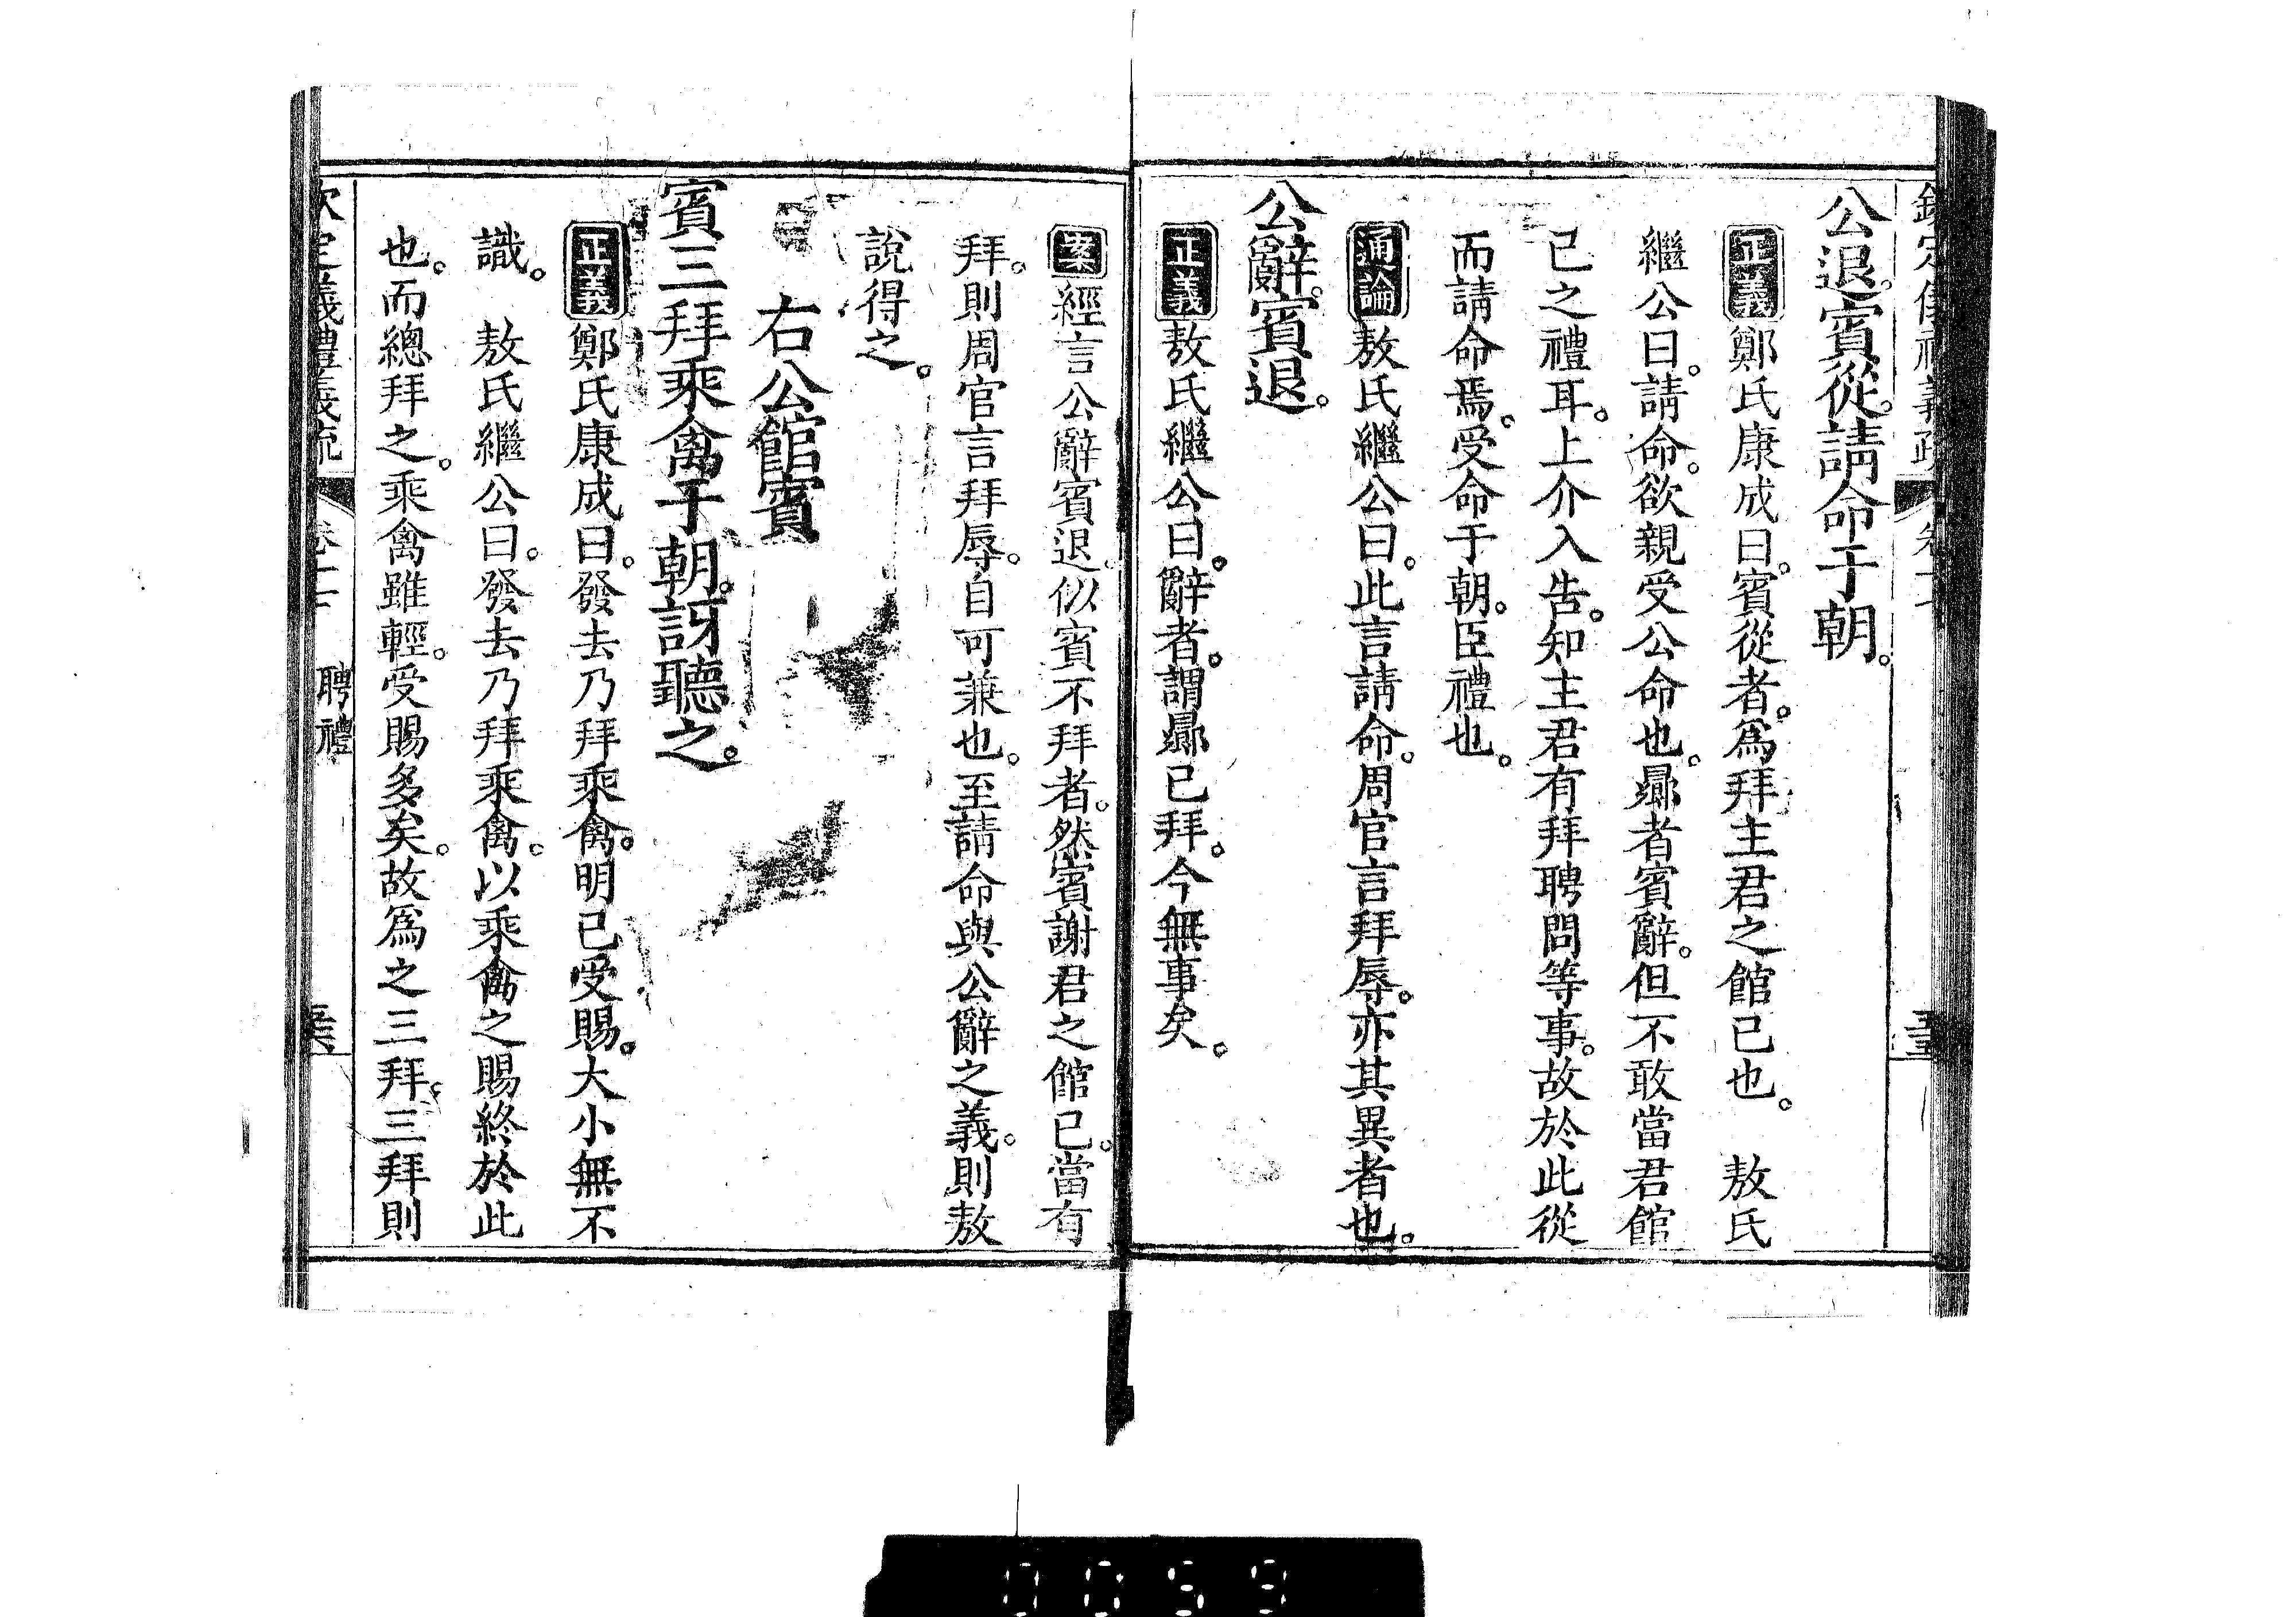 公退。賓從。請命于朝。
正義鄭氏康成曰。賓從者。爲拜主君之館已也。　敖氏
繼公曰。請命。欲親受公命也。曏者賓辭。但不敢當君館
已之禮耳。上介入告。知主君有拜聘問等事。故於此從
而請命焉。受命于朝。臣禮也。
通論敖氏繼公曰。此言請命。周官言拜辱。亦其異者也。
公辭。賓退。
正義敖氏繼公曰。辭者。謂曏已拜。今無事矣。
案經言公辭賓退。似賓不拜者。然賓謝君之館已。當有
拜。則周官言拜辱。自可兼也。至請命與公辭之義。則敖
說得之。
右公館賓
賓三拜乘禽于朝。訝聽之。
正義鄭氏康成曰。發去乃拜乘禽。明已受賜。大小無不
識。　敖氏繼公曰。發去乃拜乘禽。以乘禽之賜終於此
也。而總拜之。乘禽雖輕。受賜多矣。故爲之三拜。三拜則
聘禮
0059